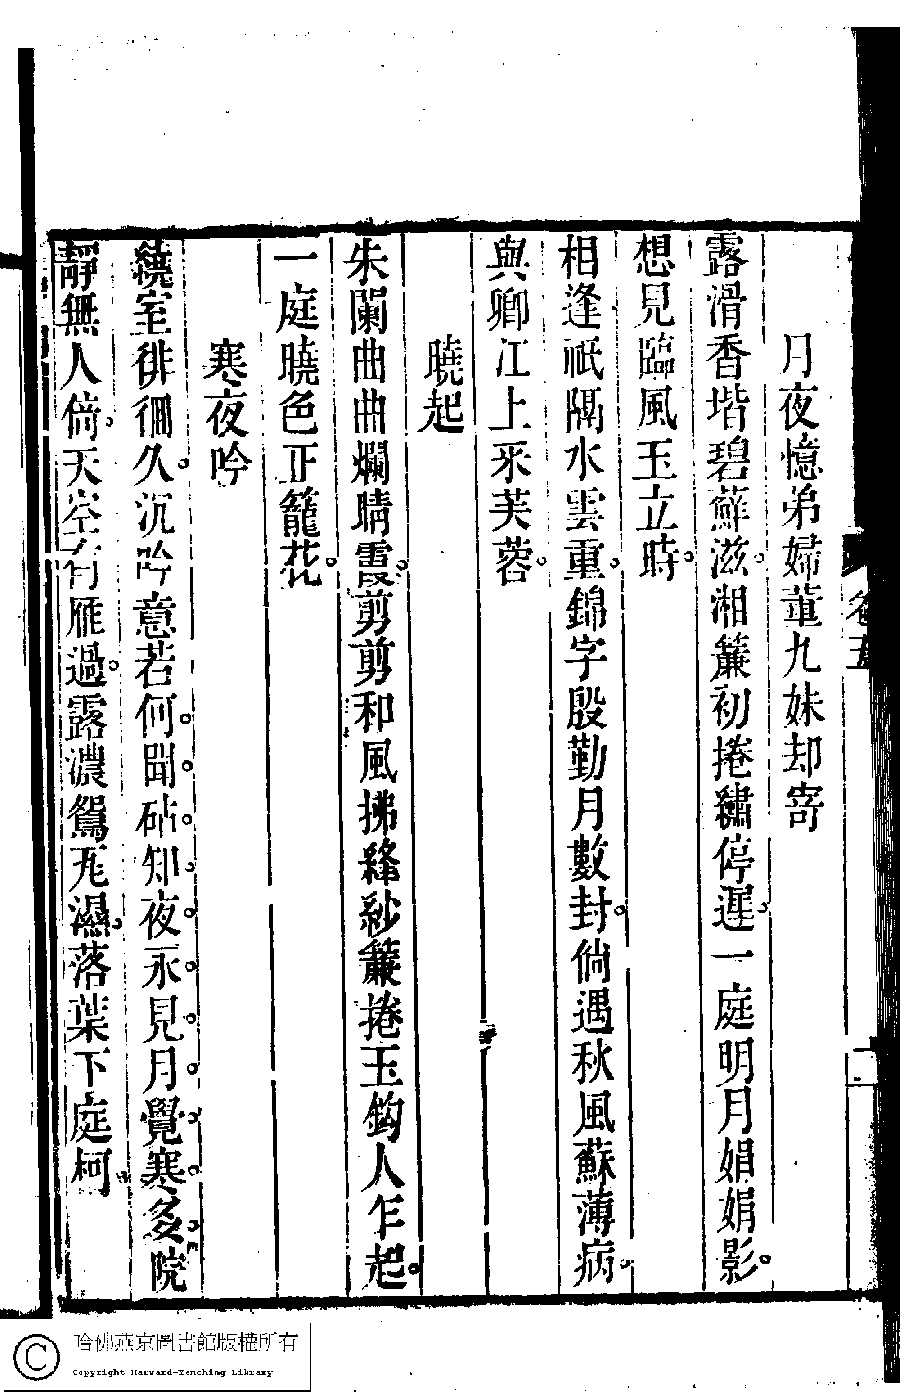 卷五
月夜憶弟婦董九妹却寄
露滑香堦碧蘚滋。湘簾初捲繡停遲。一庭明月娟娟影。
想見臨風玉立時。
相逢祇隔水雲重。錦字殷勤月數封。倘遇秋風蘇薄病。
與卿江上采芙蓉。
曉起
朱闌曲曲爛晴霞。剪剪和風拂絳紗。簾捲玉鈎人乍起。
一庭曉色正籠花。
寒夜吟
繞室徘徊久。沉吟意若何。聞砧知夜永。見月覺寒多。院
靜無人倚。天空有雁過。露濃鴛瓦濕。落葉下庭柯。
哈佛燕京圖書館版權所有
Copyright Harvard-Yenching Library